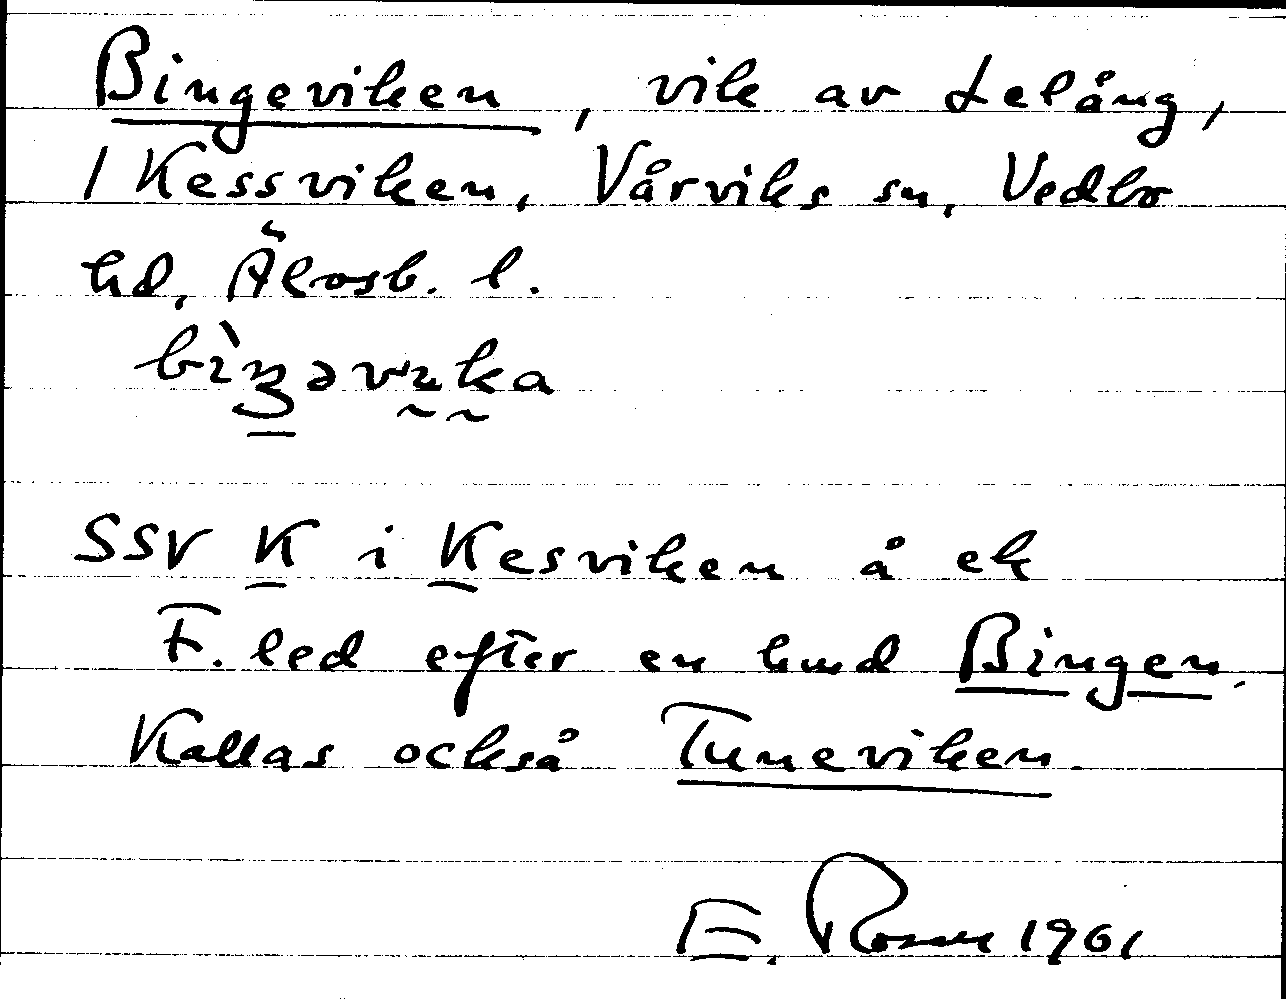 Bingeviken, vik av Lelång,
/ Kessviken, Vårviks sn, Vedbo
hd, Älvsb. l.
bìŋəvɪka
SSV K i Kesviken å ek
F. led efter en hund Bingen.
Kallas också Tuneviken.
E. Rosell 1961